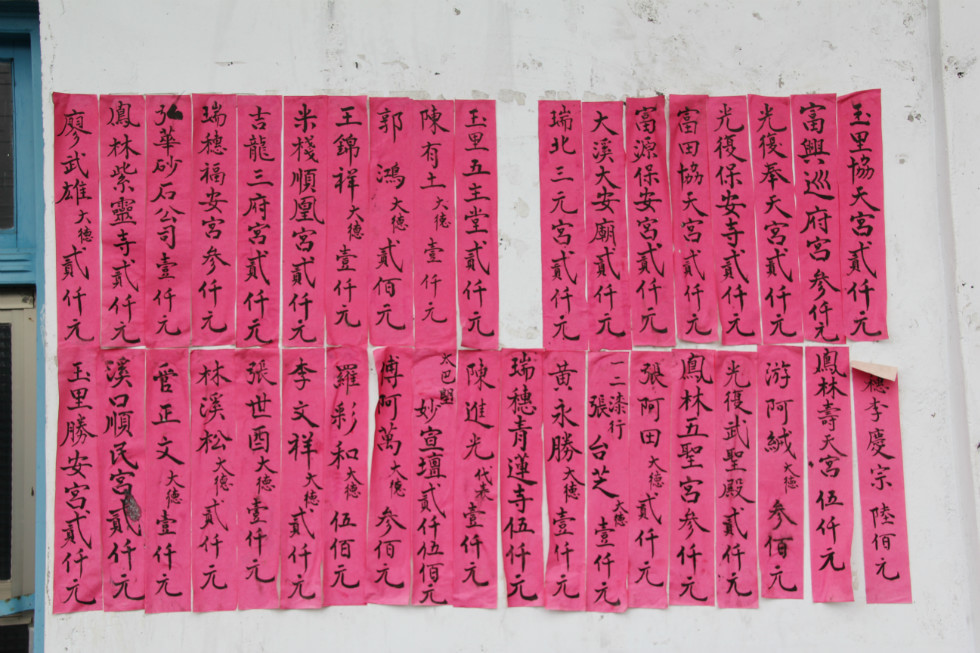 玉里協天宮貳仟元
富興巡府宮參仟元
光復奉天宮貳仟元
光復保安寺貳仟元
富田協天宮貳仟元
富源保安宮貳仟元
大溪大安廟貳仟元
瑞北三元宮貳仟元
玉里五主堂貳仟元
陳有土大德壹仟元
郭鴻大德貳佰元
王錦祥大德壹仟元
米棧順凰宮貳仟元
吉龍三府宮貳仟元
瑞穗福安宮參仟元
弘華砂石公司壹仟元
鳳林紫靈寺貳仟元
廖武雄大德貳仟元
穗李慶宗陸佰元
鳳林壽天宮伍仟元
游阿絨大德參佰元
光復武聖殿貳仟元
鳳林五聖宮參仟元
張阿田大德貳仟元
一二漆行張台芝大德壹仟元
黃永勝大德壹仟元
瑞穗青蓮寺伍仟元
陳進光代表壹仟元
太巴塱妙宣壇貳仟伍佰元
傅阿萬大德參佰元
羅彩和大德伍佰元
李文祥大德貳仟元
張世酉大德壹仟元
林溪松大德貳仟元
管正文大德壹仟元
溪口順民宮貳仟元
玉里勝安宮貳仟元